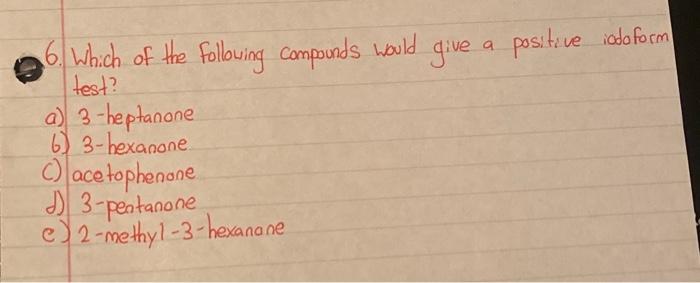 6. Which of the following compounds would give a positive iodoform
test?
a) 3-heptanone
b) 3-hexanone
c) acetophenone
d) 3-pentanone
e) 2-methyl-3-hexanone